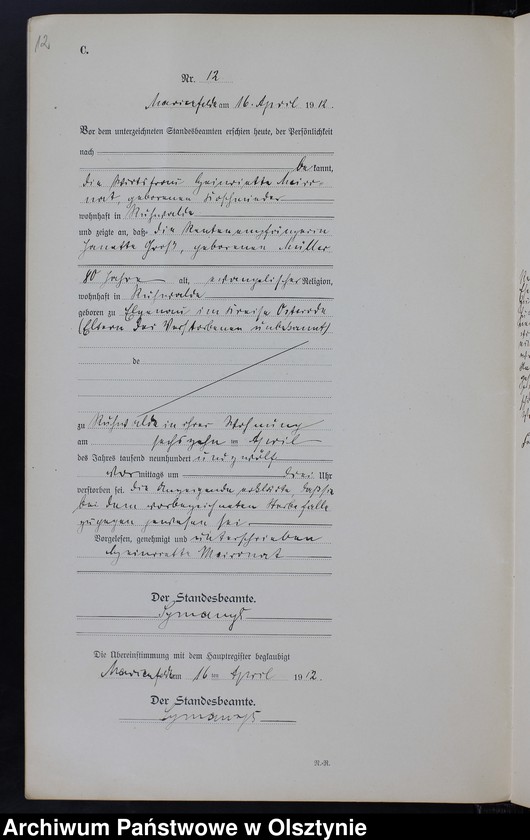 12.
C.
Nr. 12
Marienfelde am 16. April 1912.
Vor dem unterzeichneten Standesbeamten erschien heute, der Persönlichkeit
nach
bekannt,
die Wirtsfrau Heinriette
geborenen
wohnhaft in
und zeigte an, daß die Rentenempfängerin
geborenen Müller
80 Jahre alt, evangelischer Religion,
wohnhaft in
geboren zu Elgenau im Kreise Osterode
(Eltern der Verstorbenen unbekannt)
de
zu in ihrer Wohnung
am sechszehn ten April
des Jahres tausend neunhundert und zwölf
Vormittags um drei Uhr
verstorben sei. Die Anzeigende erklärte, daß sie
bei dem vorbezeichneten Sterbefalle
zugegen gewesen sei.
Vorgelesen, genehmigt und unterschrieben
Heinriette
Der Standesbeamte.
Die Übereinstimmung mit dem Hauptregister beglaubigt
Marienfelde am 16 ten April 1912.
Der Standesbeamte.
N.-R.
Archiwum Państwowe w Olsztynie